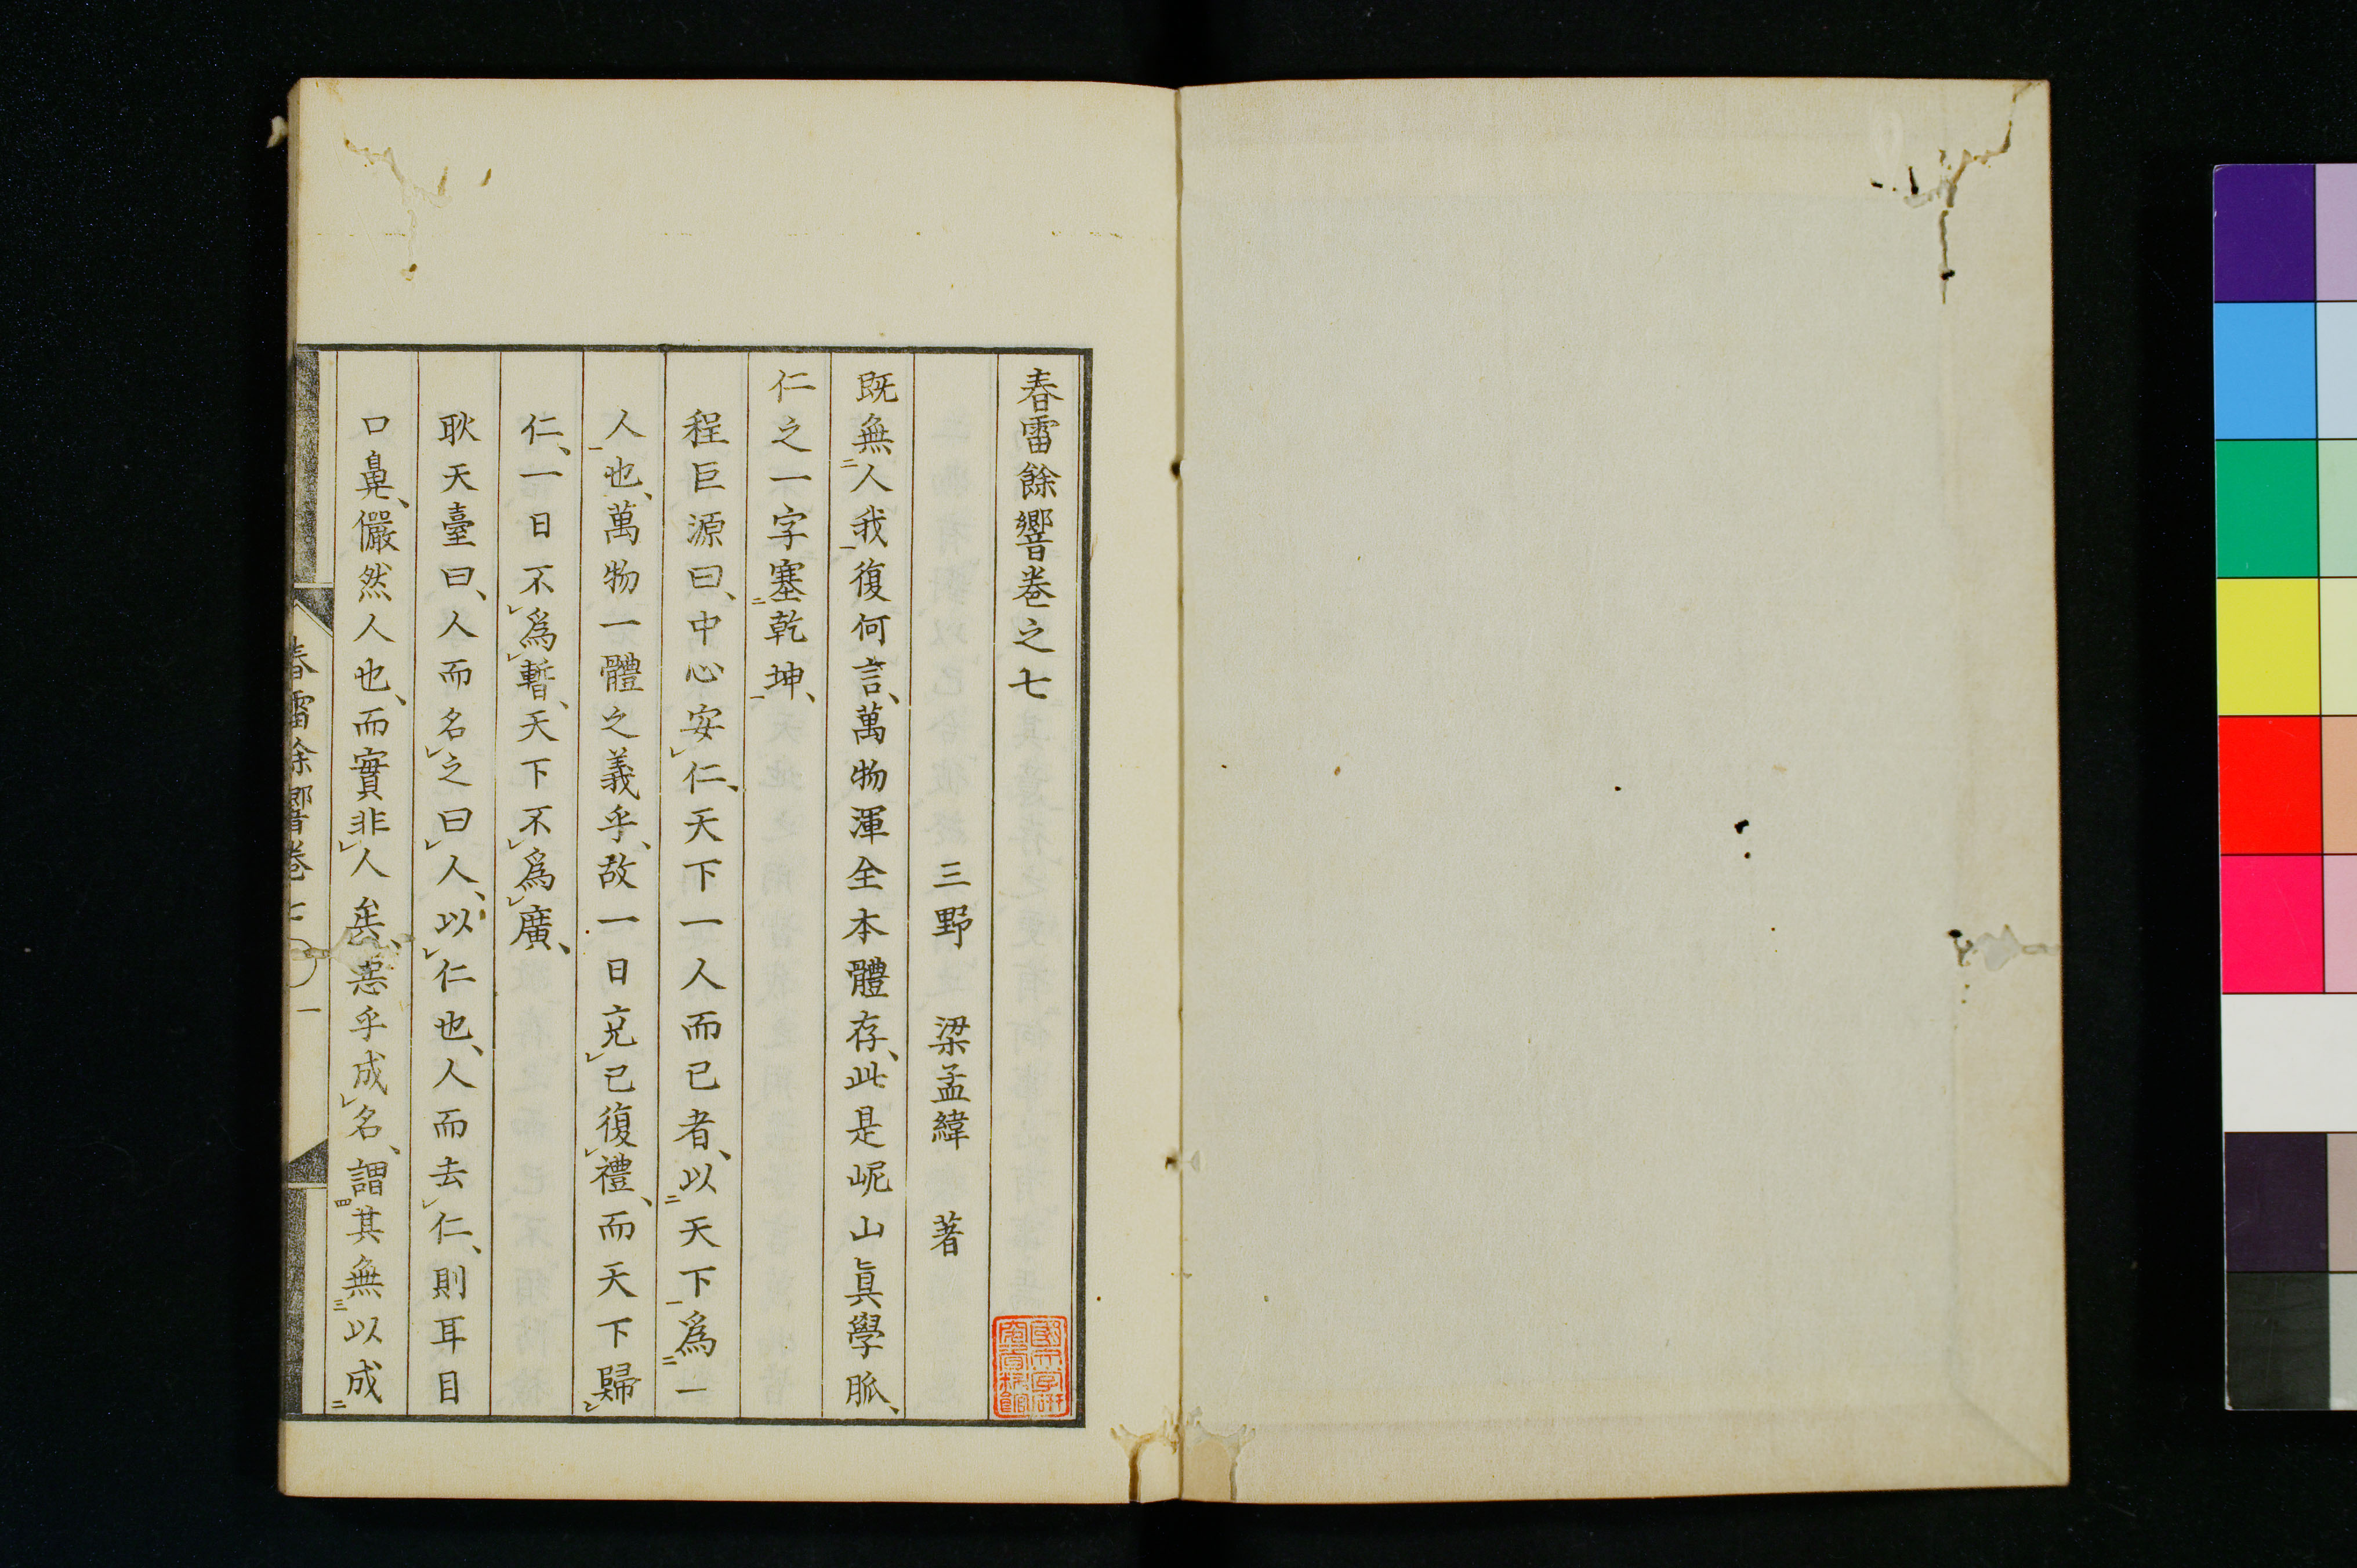 春雷餘響卷之七
三野 梁孟緯 著
既無二人我一復何言、萬物渾全本體存、此是岻山眞學脈、
仁之一字塞二乾坤一、
程巨源曰、中心安レ仁、天下一人而已者、以二天下一爲二一
人一也、萬物一體之義乎、故一日克レ已復レ禮、而天下歸レ
仁、一日不レ爲レ暫、天下不レ爲レ廣、
耿天臺曰、人而名レ之曰レ人、以レ仁也、人而去レ仁、則耳目
口鼻、儼然人也、而實非レ人矣、惡乎成レ名、謂四其無三以成二
春雷餘響卷七 一